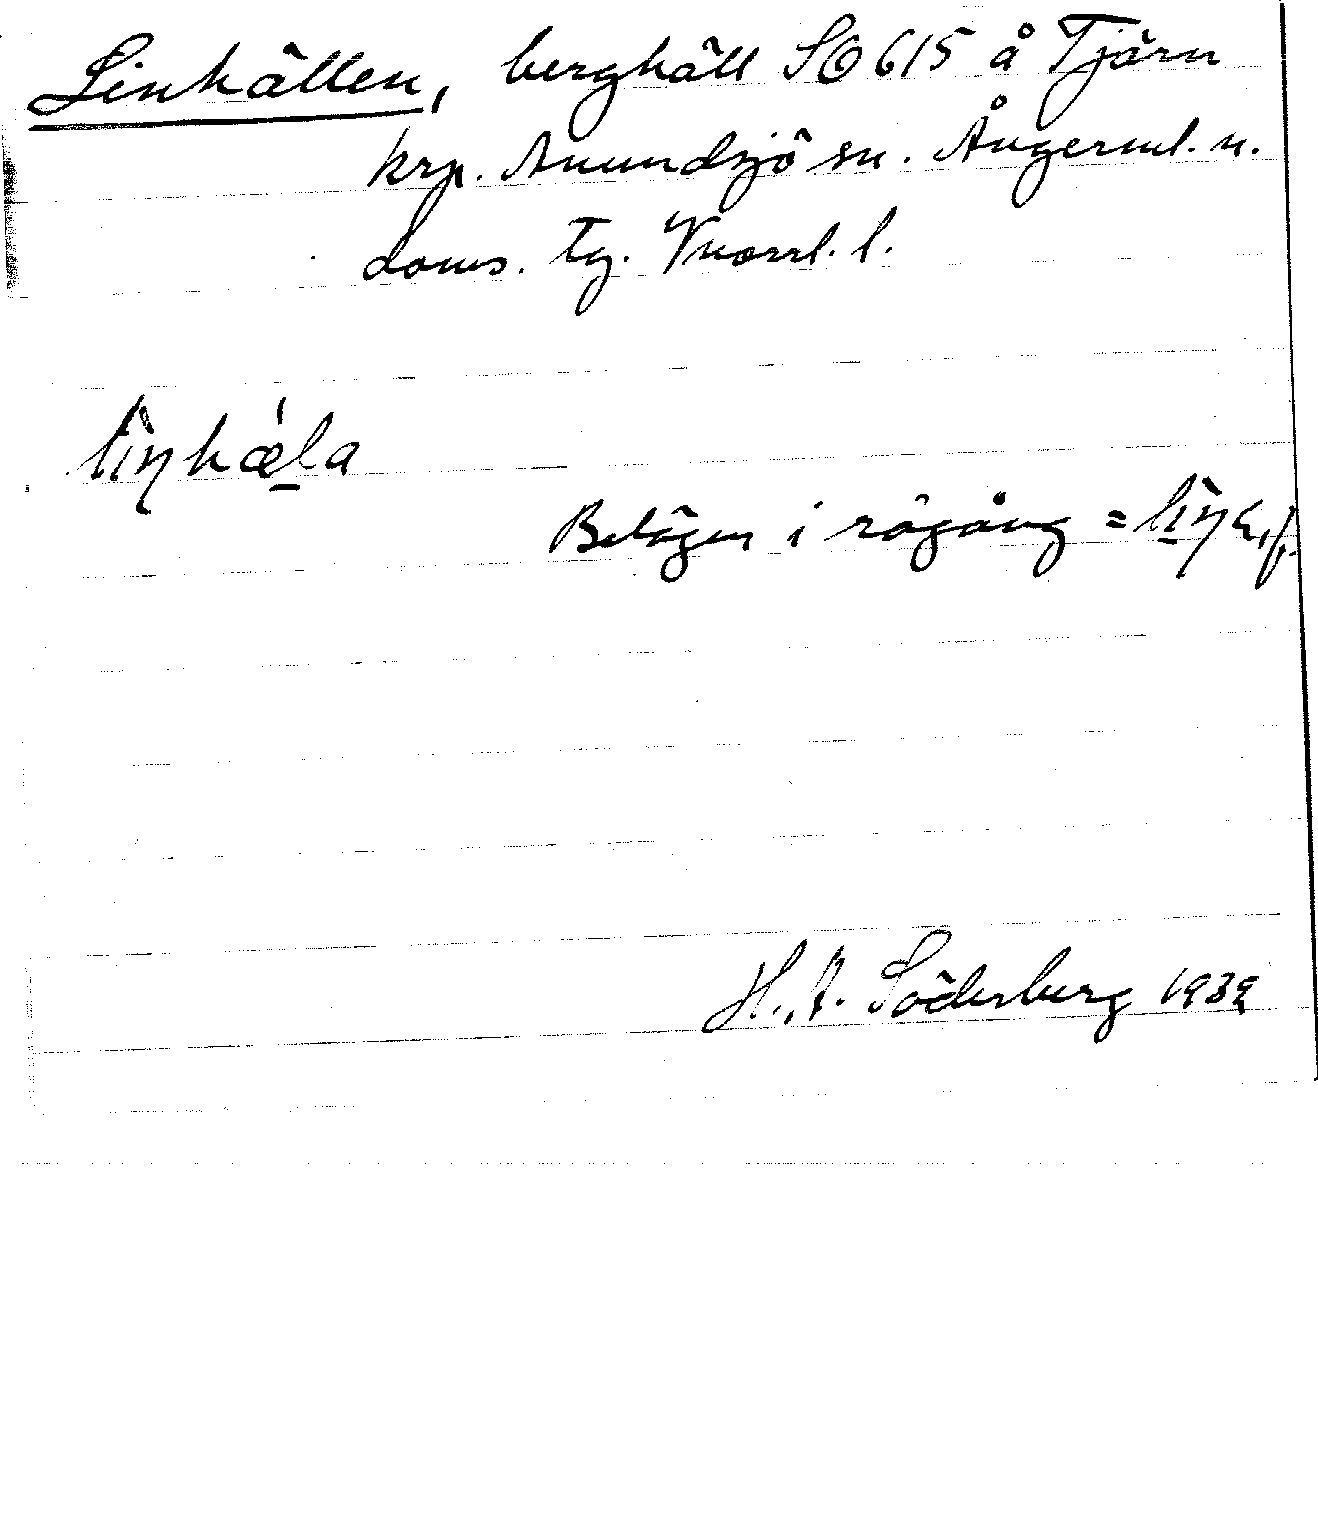 Linhällen, berghäll SO 615 å Tjärn
krp. Anundsjö sn. Ångerml. n.
doms. tg. Vnorrl. l.
liŋhæla
Belägen i rågång =
H. A. Söderberg 1939